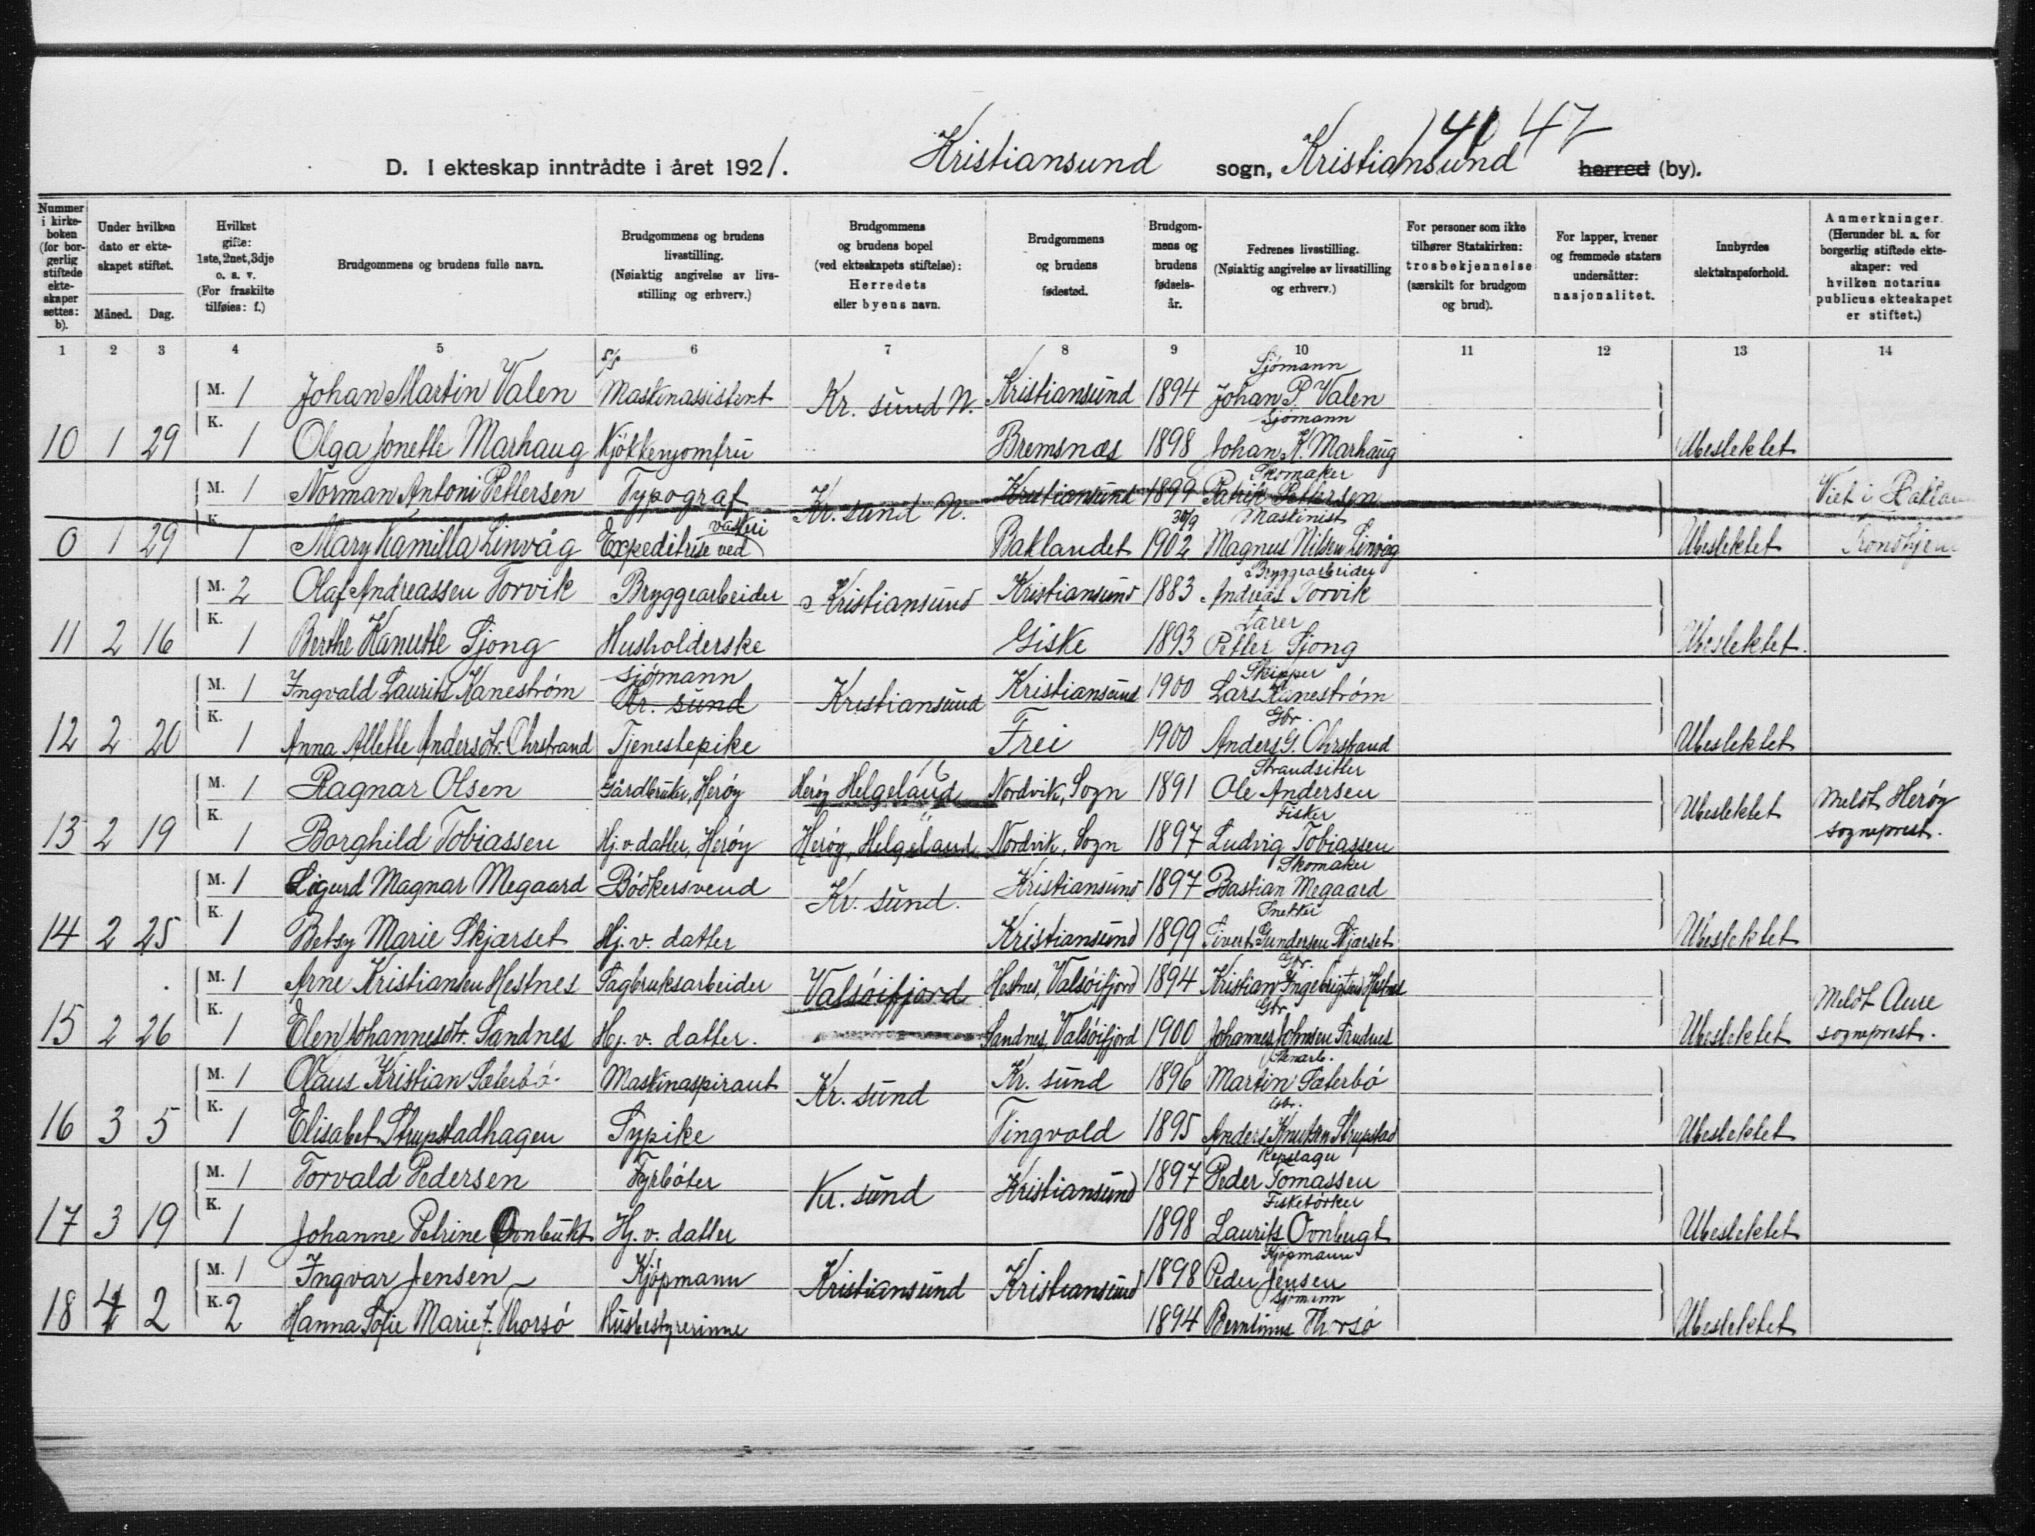 141 47
D. I ekteskap inntrådte i året 1921. Kristiansund sogn, Kristiansund herred (by).
Nummer i kirkeboken (for borgerlig stiftede ekteskaper settes: b).
Under hvilken dato er ekteskapet stiftet.
Måned. Dag.
Hvilket gifte: 1ste, 2net, 3dje o. s. v. (For fraskilte tilføies: f.)
Brudgommens og brudens fulle navn.
Brudgommens og brudens livsstilling. (Nøiaktig angivelse av livsstilling og erhverv.)
Brudgommens og brudens bopel (ved ekteskapets stiftelse): Herredets eller byens navn.
Brudgommens og brudens fødested.
Brudgommens og brudens fødselsår.
Fedrenes livsstilling. (Nøiaktig angivelse av livsstilling og erhverv.)
For personer som ikke tilhører Statskirken: trosbekjennelse (særskilt for brudgom og brud).
For lapper, kvener og fremmede staters undersåtter: nasjonalitet.
Innbyrdes slektskapsforhold.
Anmerkninger. (Herunder bl. a. for borgerlig stiftede ekteskaper: ved hvilken notarius publicus ekteskapet er stiftet.)
1 2 3 4 5 6 7 8 9 10 11 12 13 14
s/s Sjømann
M. 1 Johan Martin Valen Maskinassistent Kr. sund N. Kristiansund 1894 Johan P. Valen
Sjømann
10 1 29 K. 1 Olga Jonette Marhaug Kjøkkenjomfru Bremsnæs 1898 Johan K. Marhaug Ubeslektet
Skomaker
M. 1 Norman Antoni Pettersen Typograf Kr. sund N. Kristiansund 1899 Patrik Pettersen Viet i
vaskeri 30/9 Maskinist
0 1 29 K. 1 Mary Kamilla Linvåg Expeditrise ved Baklandet 1902 Magnus Nilsen Linvåg Ubeslektet
Bryggearbeider
M. 2 Olaf Andreassen Torvik Bryggearbeider Kristiansund Kristiansund 1883 Andreas Torvik
Lærer
11 2 16 K. 1 Berthe Kanutte Sjong Husholderske Giske 1893 Petter Sjong Ubeslektet.
sjømann Skipper
M. 1 Ingvald Laurits Kanestrøm Kr. sund Kristiansund Kristiansund 1900 Lars Kanestrøm
Gbr.
12 2 20 K. 1 Anna Allette Andersdtr. Ohrstrand Tjenestepike Frei 1900 Anders G. Ohrstrand Ubeslektet
Strandsitter
M. 1 Ragnar Olsen Gårdbruker, Herøy Herøy Helgeland Nordvik, Sogn 1891 Ole Andersen Meldt Herøy
Fisker
13 2 19 K. 1 Borghild Tobiassen Hj. v. datter, Herøy Herøy, Helgeland Nordvik, Sogn 1897 Ludvig Tobiassen Ubeslektet sogneprest.
Skomaker
M. 1 Sigurd Magnar Megaard Bødkersvend Kr. sund. Kristiansund 1897 Bastian Megaard
Snekker
14 2 25 K. 1 Betsy Marie Skjærset Hj. v. datter Kristiansund 1899 Sivert Gundersen Skjærset Ubeslektet
Gbr.
M. 1 Arne Kristiansen Hestnes Sagbruksarbeider Valsøifjord Hestnes, Valsøifjord 1894 Kristian Ingebrigtsen Hestnes Meldt Aure
Gbr.
15 2 26 K. 1 Elen Johannesdtr. Sandnes Hj. v. datter. Sandnes, Valsøifjord 1900 Johannes Johnsen Sandnes Ubeslektet sogneprest.
M. 1 Olaus Kristian Sæterbø Maskinaspirant Kr. sund Kr. sund 1896 Martin Sæterbø
Gbr.
16 3 5 K. 1 Elisabet Strupstadhagen Sypike Tingvold 1895 Anders Knutsen Strupstad Ubeslektet
Repslager
M. 1 Torvald Pedersen Fyrbøter Kr. sund Kristiansund 1897 Peder Tomassen
Fisketørker
17 3 19 K. 1 Johanne Petrine Ovnbukt Hj. v. datter 1898 Laurits Ovnbugt Ubeslektet
Kjøpmann
M. 1 Ingvar Jensen Kjøpmann Kristiansund Kristiansund 1898 Peder Jensen
Sjømann
18 4 2 K. 2 Hanna Sofie Marie f. Thorsø Husbestyrerinne 1894 Berntinus Thorsø Ubeslektet